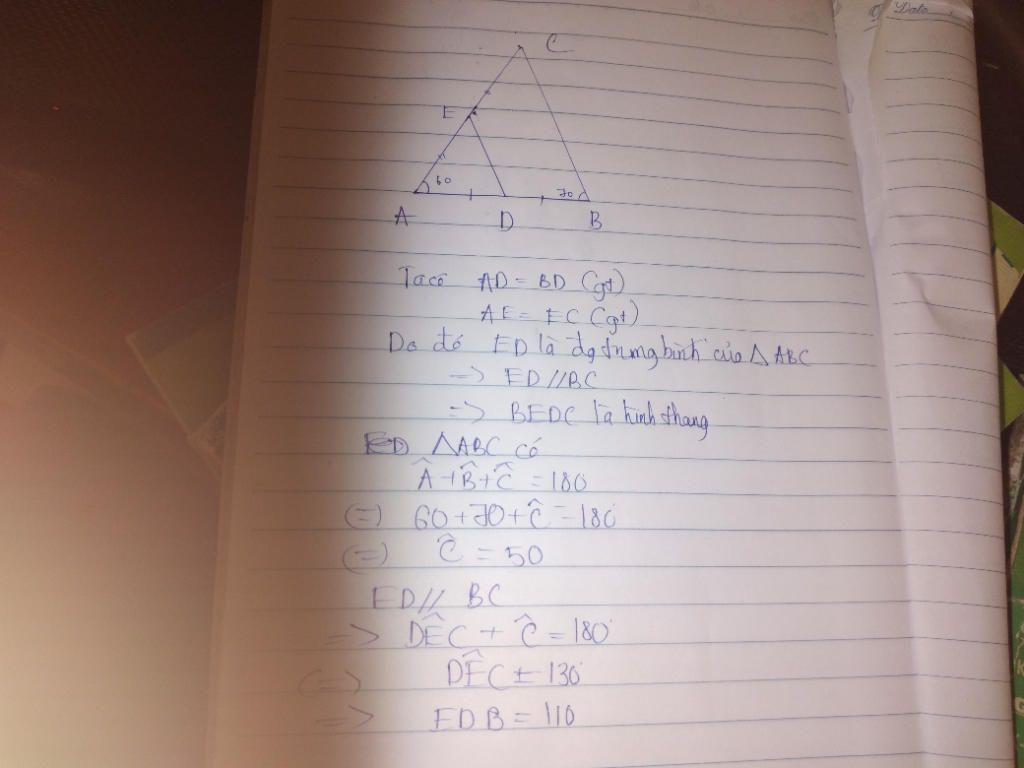 Date
C
E
60
70
A D B
Ta có AD = BD (gt)
AE = EC (gt)
Do đó ED là đg trung bình của △ ABC
=> ED // BC
=> BEDC là hình thang
△ABC có
Â + B̂ + Ĉ = 180
(=) 60 + 70 + Ĉ = 180
(=) Ĉ = 50
ED // BC
=> DÊC + Ĉ = 180
(=) DÊC = 130
=> EDB = 110